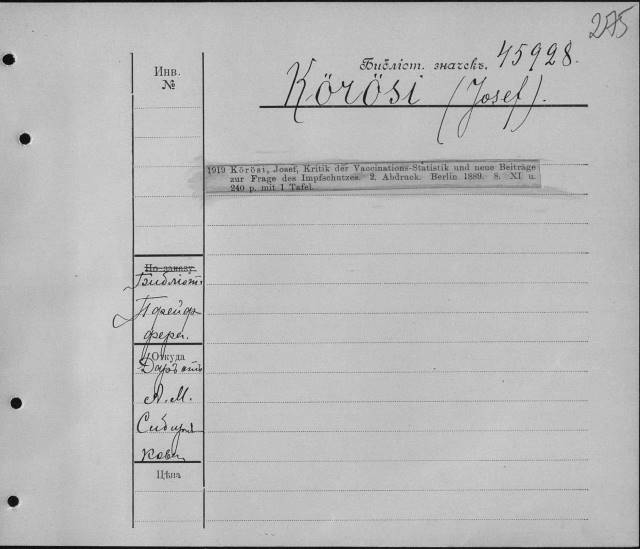 275
Библіот. значекъ. 45928.
Körösi (Josef).
Инв.
№
1919 Körösi, Josef, Kritik der Vaccinations-Statistik und neue Beiträge
zur Frage des Impfschutzes. 2. Abdruck. Berlin 1889. 8. XI u.
240 p. mit 1 Tafel.
По заказу
Библіот.
Пфейф
фера.
Откуда
Даръ отъ
А. М.
Сибиря
кова
Цѣна